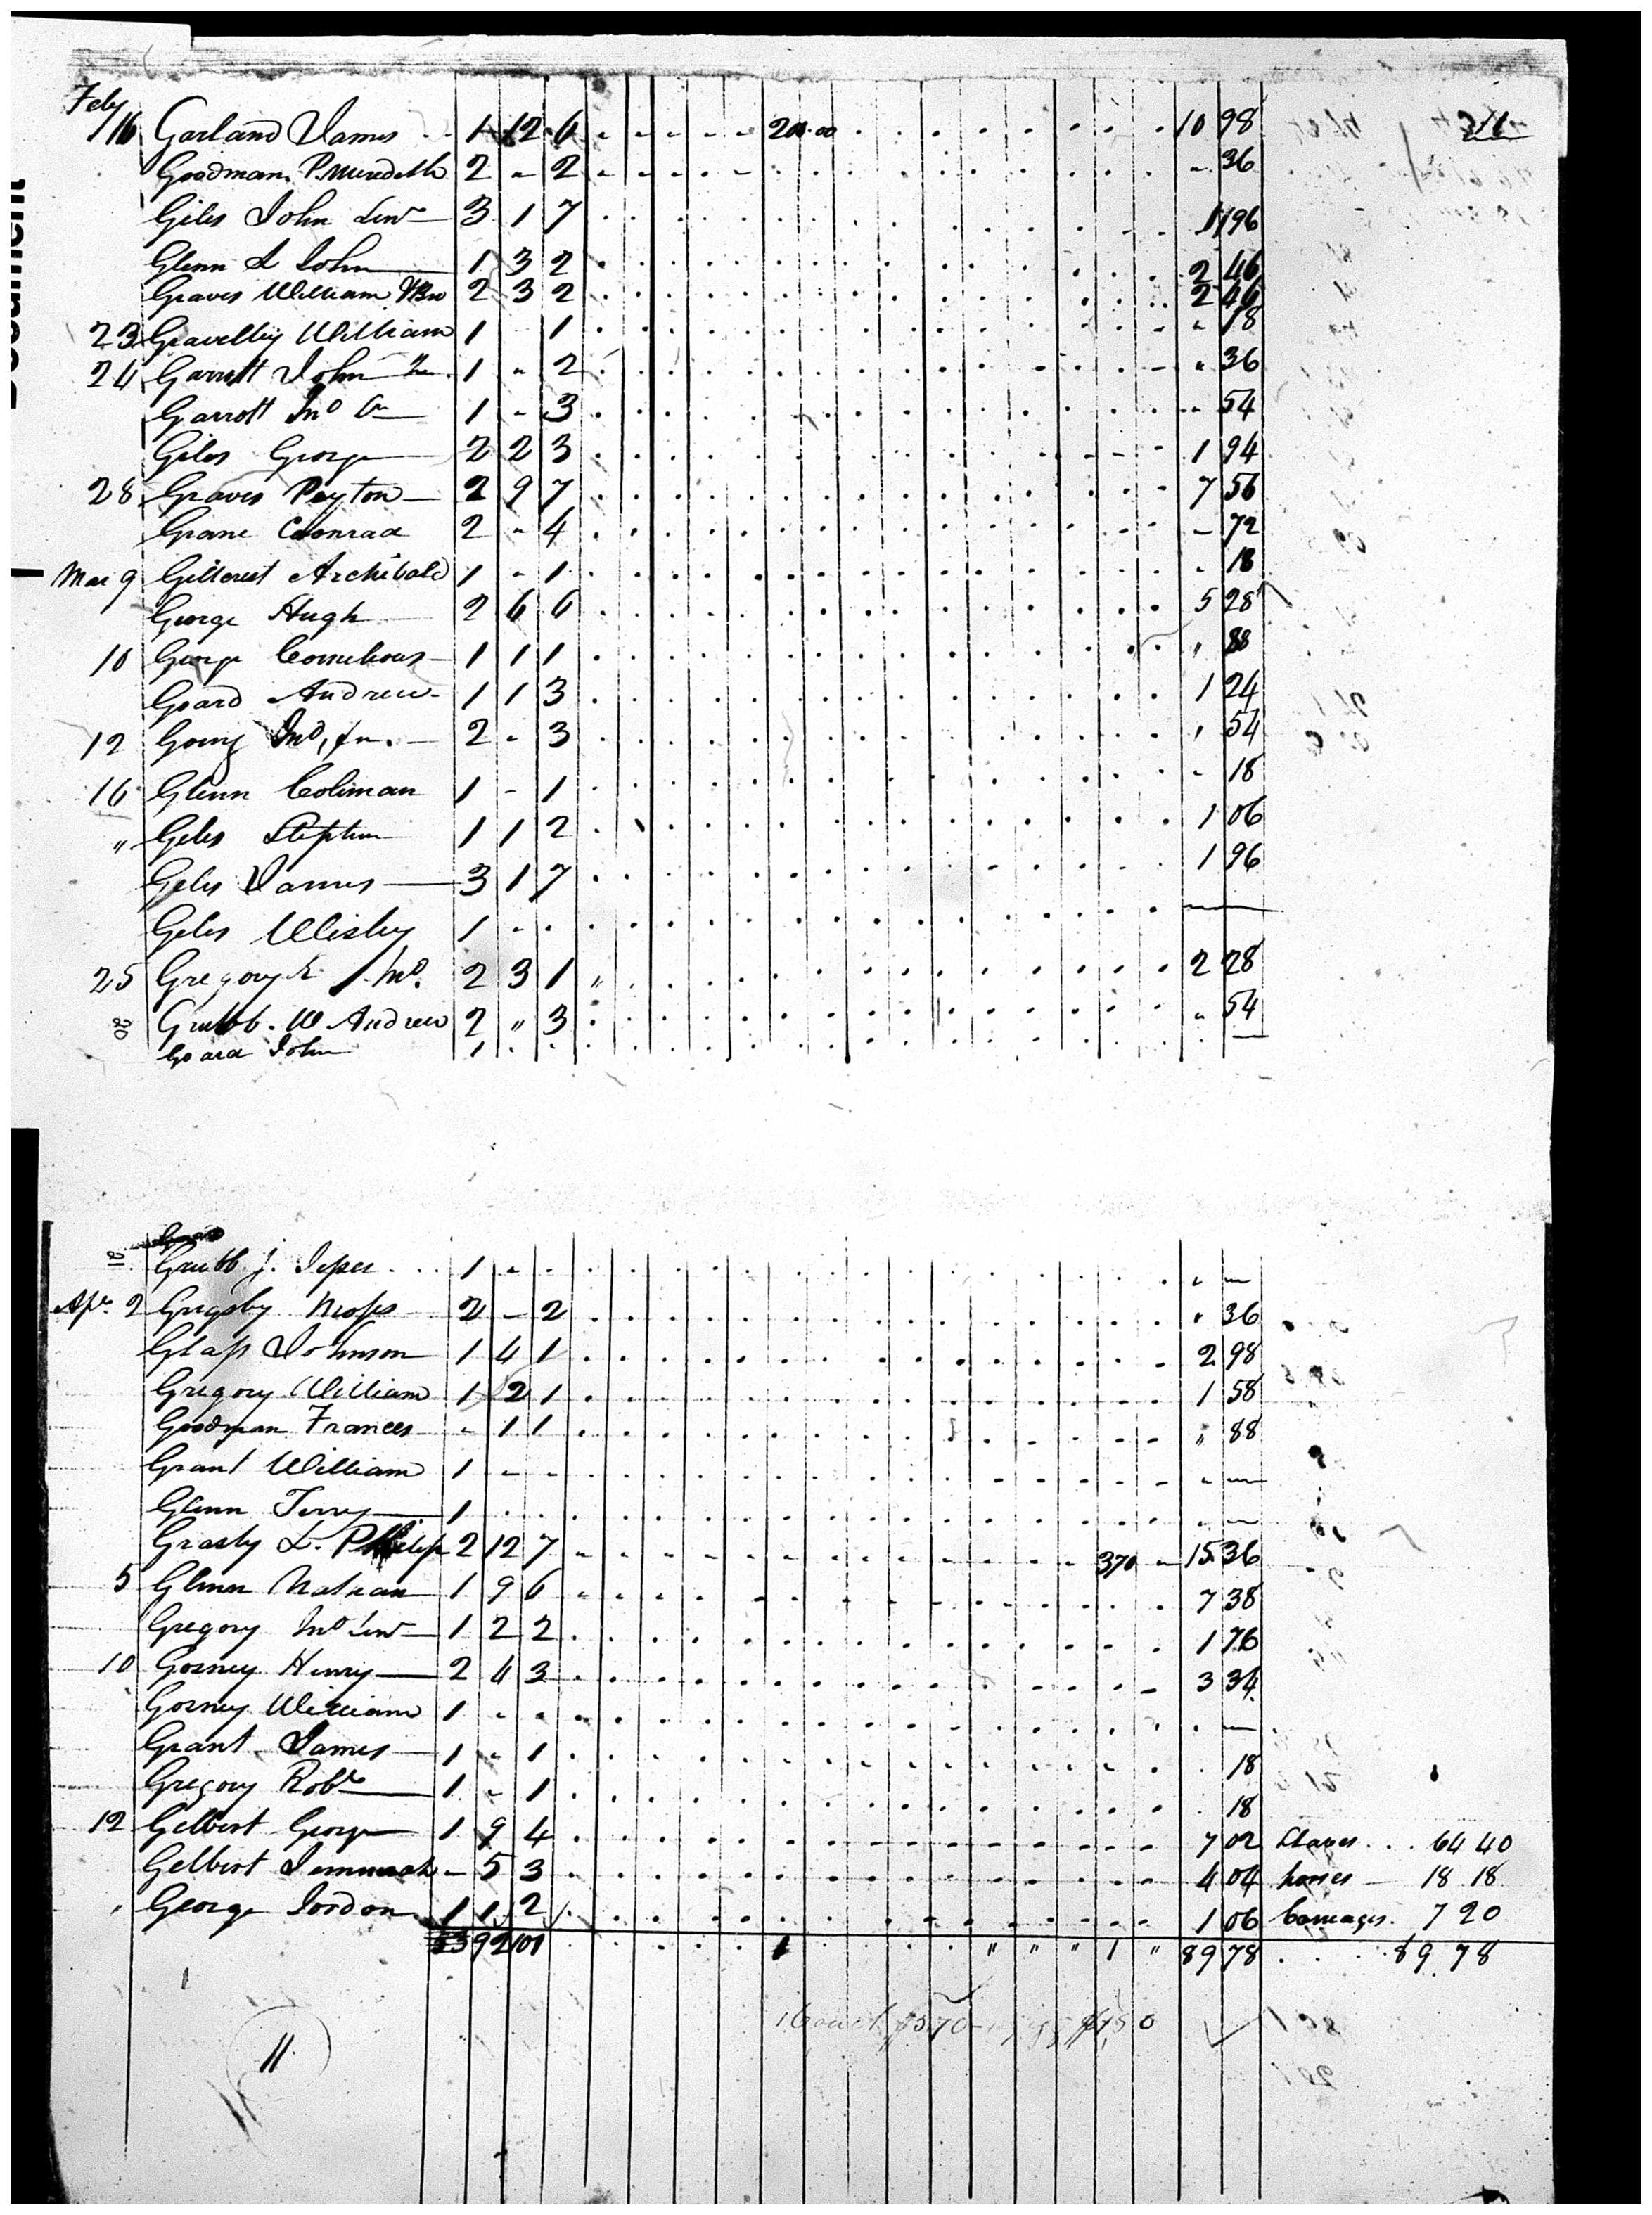 Feby
16 Garland James 1 12 6 200.00 10 98
Goodman P. Meredith 2 - 2 - 36
Giles John Senr 3 1 7 1 96
Glenn S John 1 3 2 2 46
Graves William 2 3 2 2 46
23 Gravelly William 1 1 " 18
24 Garrott John 1 - 2 " 36
Garrott Jno 1 - 3 - 54
Giles George 2 2 3 1 94
28 Graves Peyton 2 9 7 7 56
Grane Conrad 2 - 4 - 72
Mar 9 Gillcrest Archibald 1 - 1 - 18
George Hugh 2 6 6 5 28
10 George Cornelious 1 1 1 " 88
Goard Andrew 1 1 3 1 24
12 Going Jno, Jn. 2 - 3 " 54
16 Glenn Coliman 1 - 1 - 18
" Giles Stephen 1 1 2 1 06
Giles James 3 1 7 1 96
Giles Wisley 1 - —
25 Gregory Jno. 2 3 1 " 2 28
20 Grubb. W Andrew 2 " 3 " 54
Goard John 1 —
21 Grubb J. Jesse 1 - - —
Apr. 2 Grigsby Moses 2 - 2 " 36
Glass Johnson 1 4 1 2 98
Gregory William 1 2 1 1 58
Goodman Frances - 1 1 " 88
Grant William 1 - - - —
Glenn Terry 1 - —
Grasty L. Philip 2 12 7 370 - 15 36
5 Glenn Nathan 1 9 6 7 38
Gregory Jno Senr 1 2 2 1 76
10 Gosney Henry 2 4 3 3 34
Gosney William 1 - - —
Grant James 1 - 1 18
Gregory Robt 1 - 1 18
12 Gelbert George 1 9 4 7 02 Slaves . . . 64 40
Gelbert - 5 3 4 04 horses — 18 18
George Jordon 1 1 2 1 06 Carriages. 7 20
53 92 101 1 " " " 1 " 89 78 . . . . 89.78
11